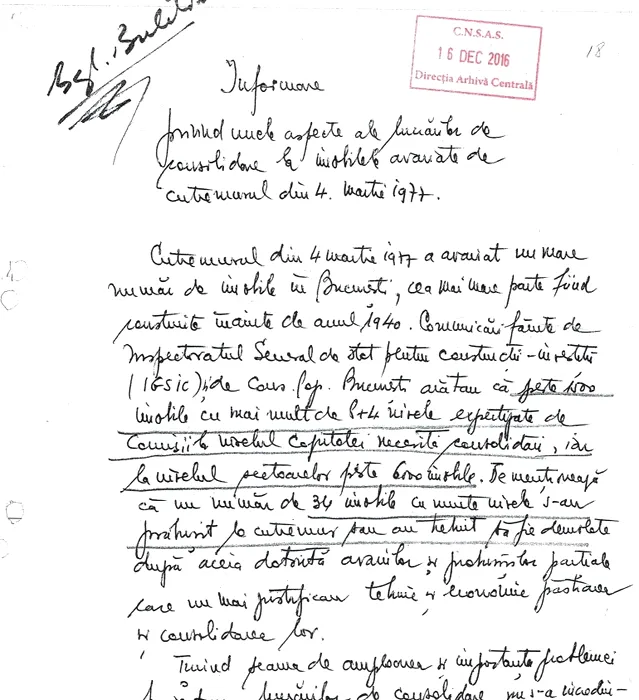 C.N.S.A.S.
16 DEC 2016
Direcția Arhivă Centrală
18
Informare
privind unele aspecte ale lucrărilor de
consolidare la imobilele avariate de
cutremurul din 4. martie 1977.
Cutremurul din 4 martie 1977 a avariat un mare
număr de imobile în București, cea mai mare parte fiind
construite înainte de anul 1940. Comunicări făcute de
Inspectoratul General de stat pentru construcții-investiții
(IGSIC) și de Cons. Pop. București arătau că peste
imobile cu mai mult de P+4 nivele expertizate de
Comisii la nivelul Capitalei necesită consolidări, iar
la nivelul sectoarelor peste 6000 imobile. De menționează
că un număr de 34 imobile cu multe nivele s-au
prăbușit la cutremur sau au trebuit să fie demolate
după aceia datorită avariilor și prăbușirilor parțiale
care nu mai justificau tehnic și economic păstrarea
și consolidarea lor.
Ținind seama de amploarea și importanța problemei
lucrărilor de consolidare